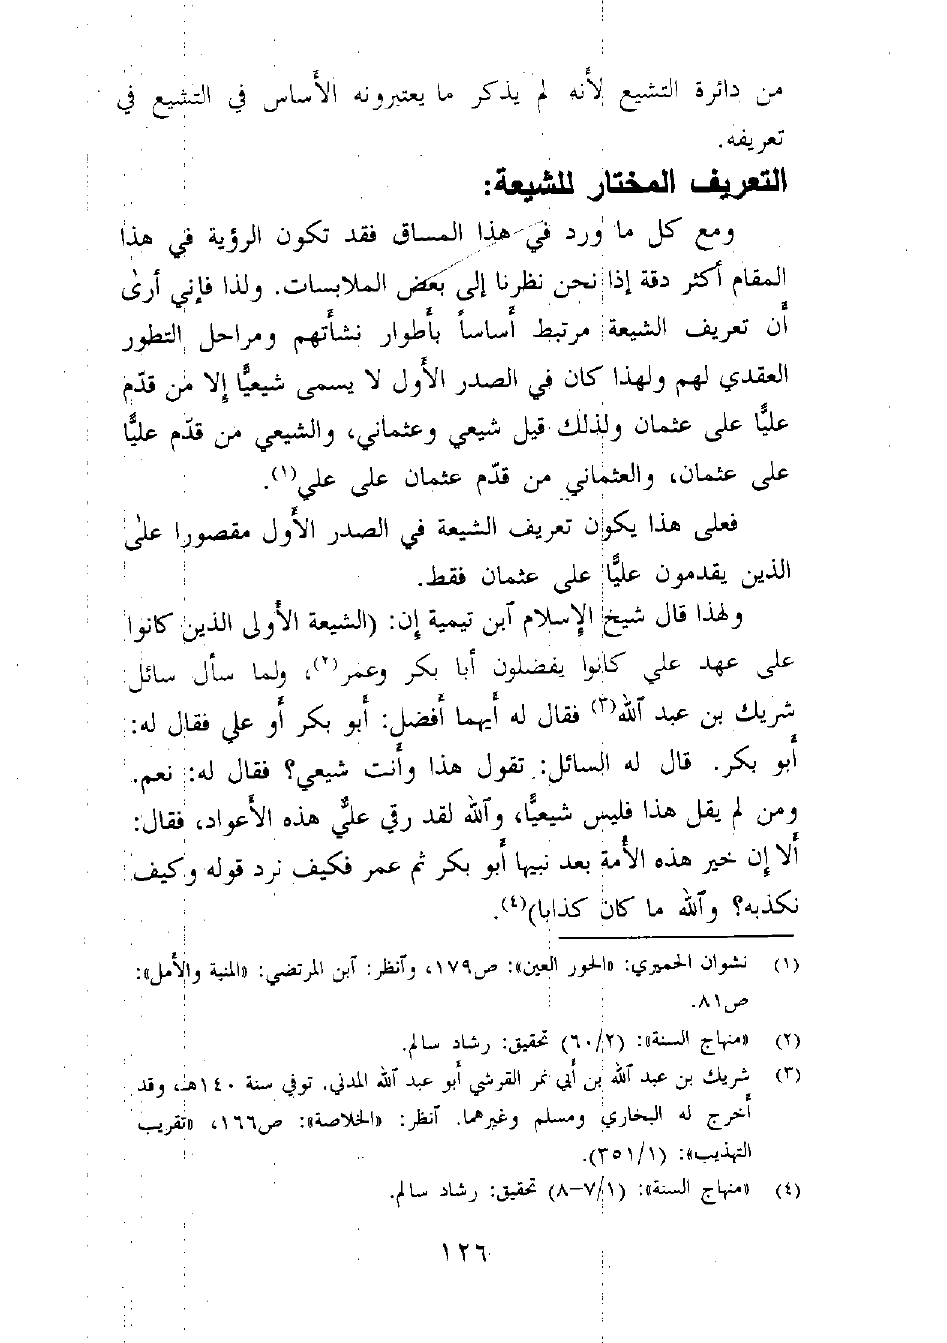 من دائرة التشيع لأنه لم يذكر ما يعتبرونه الأساس في التشيع في
تعريفه.
التعريف المختار للشيعة:
ومع كل ما ورد في هذا المساق فقد تكون الرؤية في هذا
المقام أكثر دقة إذا نحن نظرنا إلى بعض الملابسات. ولذا فإني أرى
أن تعريف الشيعة مرتبط أساساً بأطوار نشأتهم ومراحل التطور
العقدي لهم ولهذا كان في الصدر الأول لا يسمى شيعيًّا إلا من قدّم
عليًّا على عثمان ولذلك قيل شيعي وعثماني، والشيعي من قدّم عليًّا
على عثمان، والعثماني من قدّم عثمان على علي(١).
فعلى هذا يكون تعريف الشيعة في الصدر الأول مقصورا على
الذين يقدمون عليًّا على عثمان فقط.
ولهذا قال شيخ الإسلام آبن تيمية إن: (الشيعة الأولى الذين كانوا
على عهد علي كانوا يفضلون أبا بكر وعمر(٢)، ولما سأل سائل
شريك بن عبد آلله(٣) فقال له أيهما أفضل: أبو بكر أو علي فقال له:
أبو بكر. قال له السائل: تقول هذا وأنت شيعي؟ فقال له: نعم.
ومن لم يقل هذا فليس شيعيًّا، وآلله لقد رقي عليٌّ هذه الأعواد، فقال:
ألا إن خير هذه الأمة بعد نبيها أبو بكر ثم عمر فكيف نرد قوله وكيف
نكذبه؟ وآلله ما كان كذابا)(٤).
(١) نشوان الحميري: «الحور العين»: ص١٧٩، وآنظر: آبن المرتضي: «المنية والأمل»:
ص٨١.
(٢) «منهاج السنة»: (٦٠/٢) تحقيق: رشاد سالم.
(٣) شريك بن عبد آلله بن أبي نمر القرشي أبو عبد آلله المدني. توفي سنة ١٤٠هـ، وقد
أخرج له البخاري ومسلم وغيرهما. آنظر: «الخلاصة»: ص١٦٦، «تقريب
التهذيب»: (٣٥١/١).
(٤) «منهاج السنة»: (٧/١–٨) تحقيق: رشاد سالم.
١٢٦